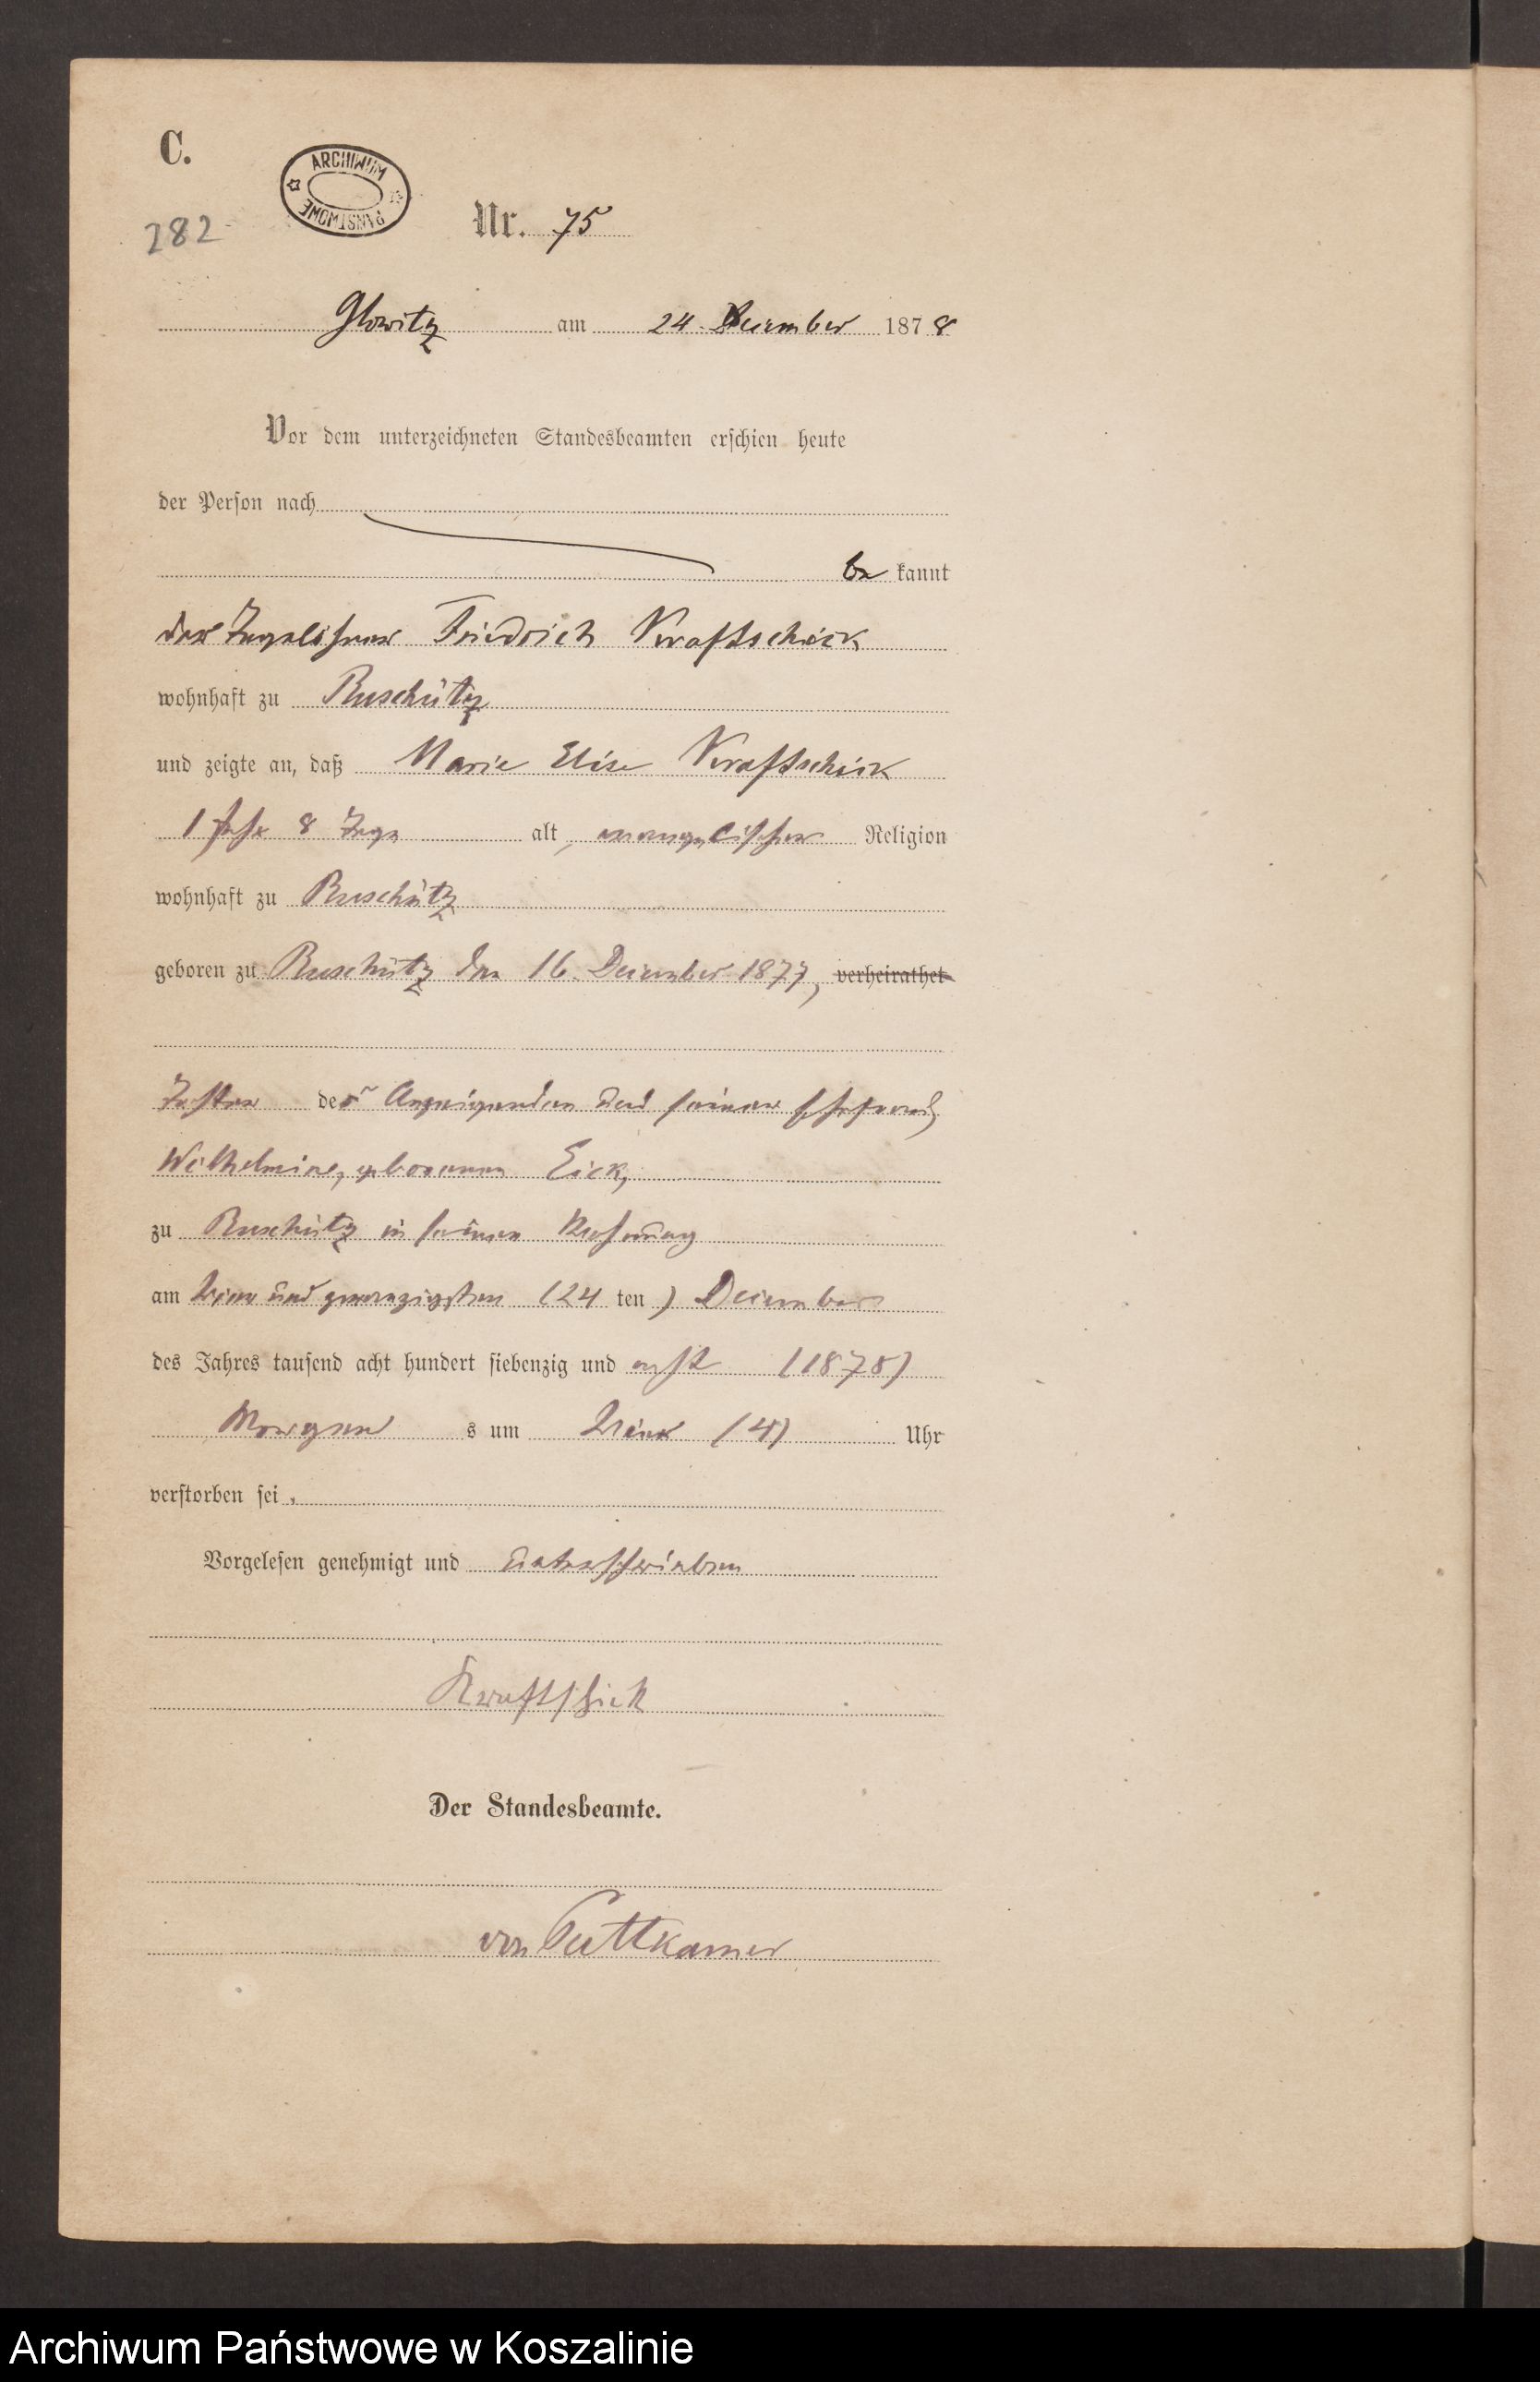 C.
ARCHIWUM
PAŃSTWOWE
282
Nr. 75
Glowitz am 24. December 1878
Vor dem unterzeichneten Standesbeamten erschien heute
der Person nach
be kannt
der Tagelöhner Friedrich Kraftschick
wohnhaft zu Ruschütz
und zeigte an, daß Marie Elise Kraftschick
1 Jahr 8 Tage alt, evangelischer Religion
wohnhaft zu Ruschütz
geboren zu Ruschütz den 16. December 1877, verheirathet
Tochter des Anzeigenden und seiner Ehefrau,
Wilhelmine, geborenen Eick,
zu Ruschütz in seiner Wohnung
am vier und zwanzigsten (24 ten) December
des Jahres tausend acht hundert siebenzig und acht (1878)
Morgen s um vier (4) Uhr
verstorben sei.
Vorgelesen genehmigt und unterschrieben
Kraftschick
Der Standesbeamte.
von Puttkamer
Archiwum Państwowe w Koszalinie